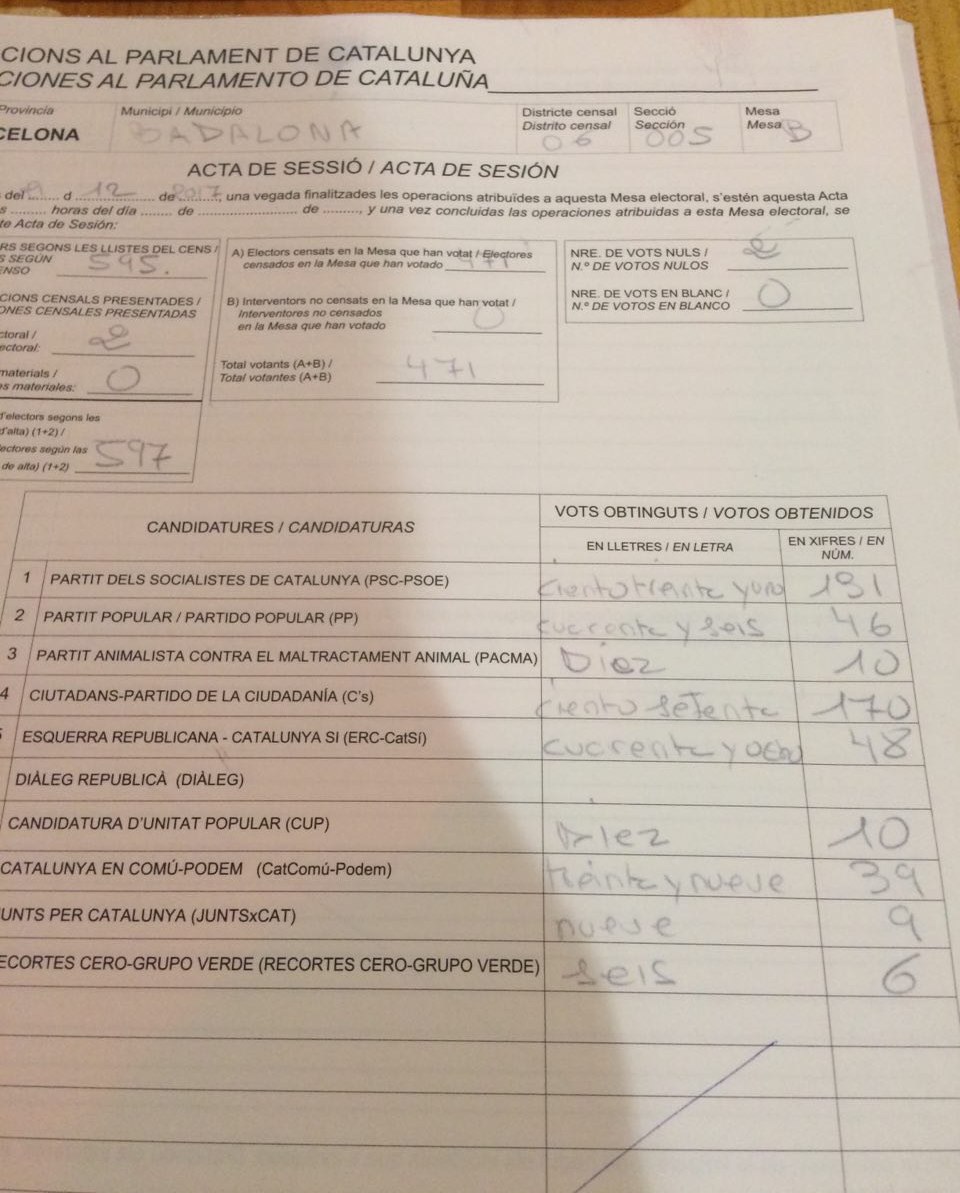 CIONS AL PARLAMENT DE CATALUNYA
CIONES AL PARLAMENTO DE CATALUÑA
Provincia
CELONA
Municipi / Municipio
BADALONA
Districte censal
Distrito censal
06
Secció
Sección
005
Mesa
Mesa B
ACTA DE SESSIÓ / ACTA DE SESIÓN
del ........ d 12 de 2017, una vegada finalitzades les operacions atribuïdes a aquesta Mesa electoral, s'estén aquesta Acta
s ........ horas del día ........ de ........................ de ........, y una vez concluidas las operaciones atribuidas a esta Mesa electoral, se
te Acta de Sesión:
RS SEGONS LES LLISTES DEL CENS /
S SEGÚN
ENSO 595.
CIONS CENSALS PRESENTADES /
ONES CENSALES PRESENTADAS
ctoral /
ectoral: 2
materials /
es materiales: 0
d'electors segons les
d'alta) (1+2) /
lectores según las
de alta) (1+2) 597
A) Electors censats en la Mesa que han votat / Electores
censados en la Mesa que han votado 471
B) Interventors no censats en la Mesa que han votat /
Interventores no censados
en la Mesa que han votado 0
Total votants (A+B) /
Total votantes (A+B) 471
NRE. DE VOTS NULS /
N.º DE VOTOS NULOS 2
NRE. DE VOTS EN BLANC /
N.º DE VOTOS EN BLANCO 0
CANDIDATURES / CANDIDATURAS
VOTS OBTINGUTS / VOTOS OBTENIDOS
EN LLETRES / EN LETRA
EN XIFRES / EN
NÚM.
1 PARTIT DELS SOCIALISTES DE CATALUNYA (PSC-PSOE) ciento treinta y uno 131
2 PARTIT POPULAR / PARTIDO POPULAR (PP) cuarenta y seis 46
3 PARTIT ANIMALISTA CONTRA EL MALTRACTAMENT ANIMAL (PACMA) Diez 10
4 CIUTADANS-PARTIDO DE LA CIUDADANÍA (C's) ciento setenta 170
5 ESQUERRA REPUBLICANA - CATALUNYA SI (ERC-CatSí) cuarenta y ocho 48
DIÀLEG REPUBLICÀ (DIÀLEG)
CANDIDATURA D'UNITAT POPULAR (CUP) Diez 10
CATALUNYA EN COMÚ-PODEM (CatComú-Podem) treinta y nueve 39
UNTS PER CATALUNYA (JUNTSxCAT) nueve 9
ECORTES CERO-GRUPO VERDE (RECORTES CERO-GRUPO VERDE) seis 6